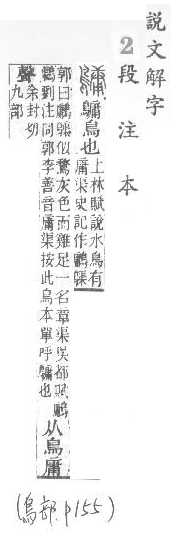 說文解字
2 段注本
鷛 鷛鳥也
上林賦說水鳥有
庸渠史記作鷛𪆂
郭曰鷛𪆂似鶩灰色而雞足一名章渠吳都賦鷛
𪆂劉注同郭李善音庸渠按此鳥本單呼鷛也
从鳥庸
聲
余封切
九部
(鳥部.p155)